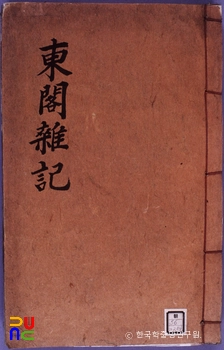 東閣雜記
© 한국학중앙연구원